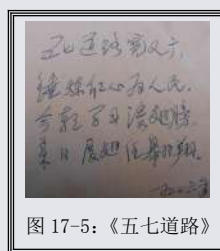 五七道路宽又广,
锤炼红心为人民.
今朝学习
来日展翅任翱翔.
图 17-5:《五七道路》